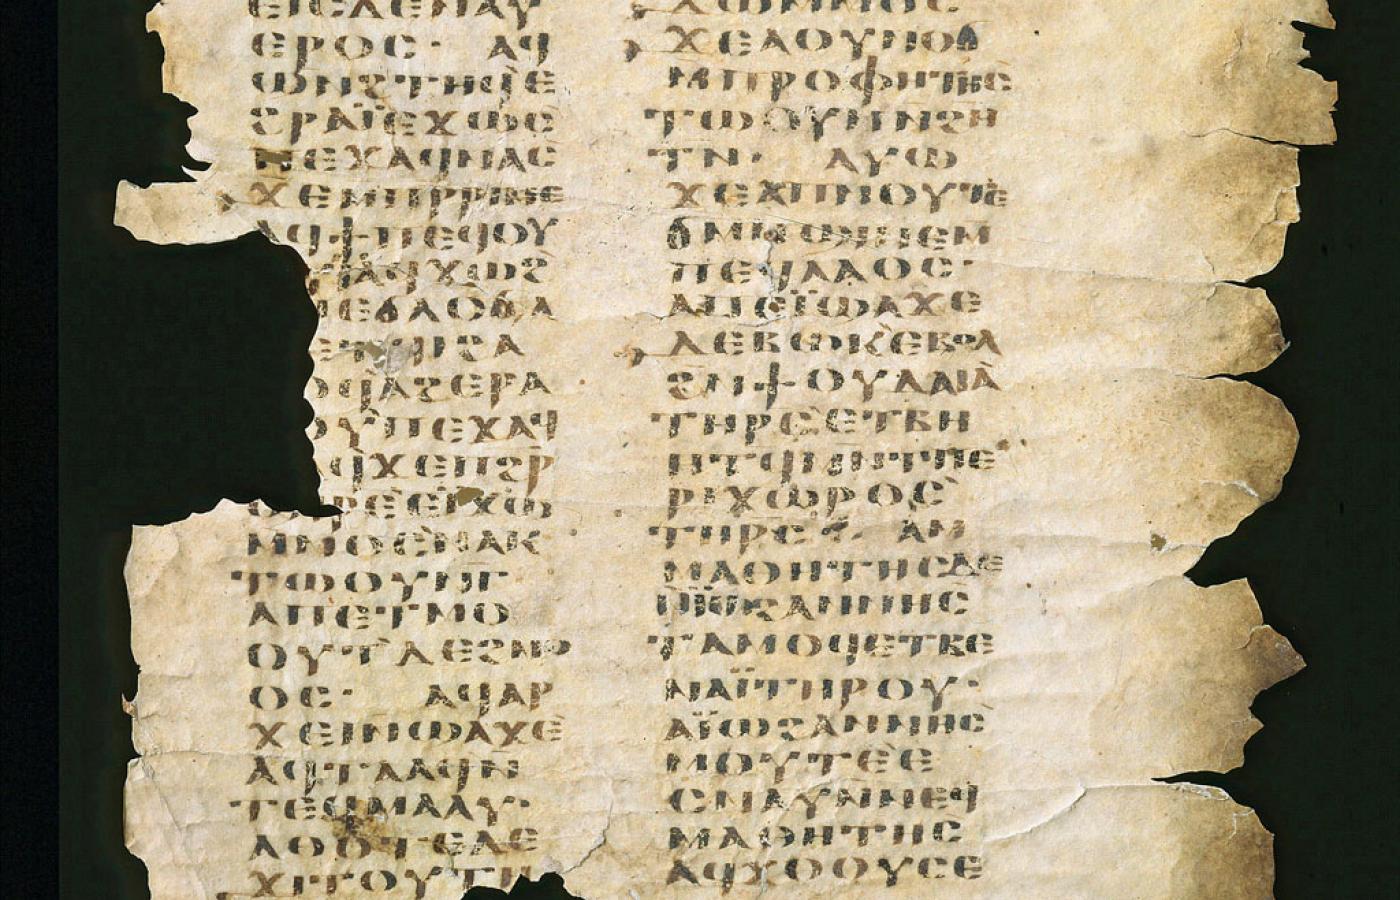 ⲉⲓⲥⲇⲉⲛⲁⲩ
ⲉⲣⲟⲥ· ⲁϥ
ϣⲛϩⲧⲏϥⲉ
ϩⲣⲁⲓ̈ⲉϫⲱⲥ
ⲡⲉϫⲁϥⲛⲁⲥ
ϫⲉⲙⲡⲣⲣⲓⲙⲉ
ⲁϥϯⲡⲉϥⲟⲩ
ⲁϥϫⲱϩ
ⲡⲉϭⲗⲟϭⲁ
ⲉⲧϥⲓϩⲁ
ⲟϥⲁϩⲉⲣⲁ
ⲟⲩⲡⲉϫⲁϥ
ϥϫⲉⲡϩⲣ
ϣⲓⲣⲉⲉⲓϫⲱ
ⲙⲙⲟⲥⲛⲁⲕ
ⲧⲱⲟⲩⲛⲅ
ⲁⲡⲉⲧⲙⲟ
ⲟⲩⲧⲇⲉϩⲙⲟ
ⲟⲥ· ⲁϥⲁⲣ
ϫⲉⲓⲛϣⲁϫⲉ
ⲁϥⲧⲁⲁϥⲛ
ⲧⲉϥⲙⲁⲁⲩ·
ⲁⲑⲟⲧⲉⲇⲉ
ϫⲓⲧⲟⲩⲧⲏ
ϫⲱⲙⲙⲟⲥ
ϫⲉⲁⲟⲩⲛⲟϭ
ⲙⲡⲣⲟⲫⲏⲧⲏⲥ
ⲧⲱⲟⲩⲛⲛϩⲏ
ⲧⲛ· ⲁⲩⲱ
ϫⲉⲁⲡⲛⲟⲩⲧⲉ
ϭⲙⲡϣⲓⲛⲉⲙ
ⲡⲉϥⲗⲁⲟⲥ·
ⲁⲡⲉⲓ̈ϣⲁϫⲉ
ⲇⲉⲃⲱⲕⲉⲃⲟⲗ
ϩⲛϯⲟⲩⲇⲁⲓⲁ
ⲧⲏⲣⲥⲉⲧⲃⲏ
ⲏⲧϥⲙⲛⲧⲡⲉ
ⲣⲓⲭⲱⲣⲟⲥ
ⲧⲏⲣⲥ· ⲁⲙ
ⲙⲁⲑⲏⲧⲏⲥⲇⲉ
ⲛⲓ̈ⲱϩⲁⲛⲛⲏⲥ
ⲧⲁⲙⲟϥⲉⲧⲃⲉ
ⲛⲁⲓ̈ⲧⲏⲣⲟⲩ·
ⲁⲓ̈ⲱϩⲁⲛⲛⲏⲥ
ⲙⲟⲩⲧⲉⲉ
ⲥⲛⲁⲩⲛⲛⲉϥ
ⲙⲁⲑⲏⲧⲏⲥ
ⲁϥϫⲟⲟⲩⲥⲉ